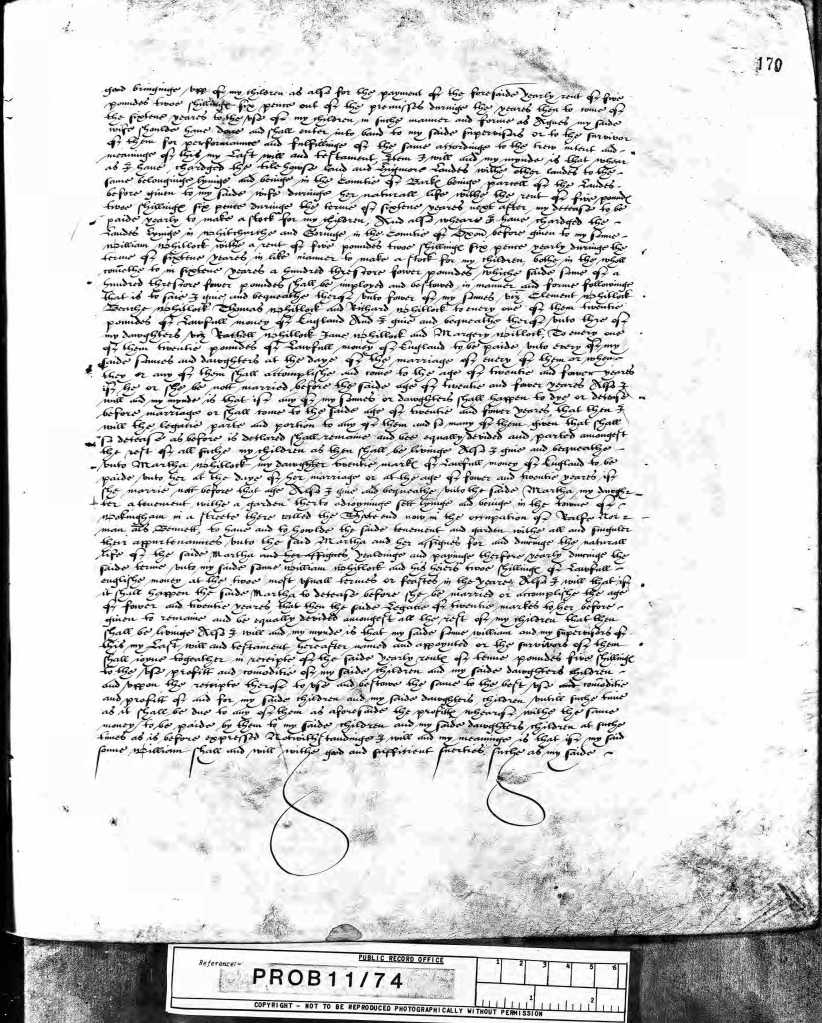 170
good bringinge upp of my children as also for the payment of the foresaide yearly rent of five
poundes twoe shillinges six pence out of the premisses duringe the yeares then to come of
the sixtene yeares to the use of my children in suche manner and forme as Agnes my saide
wife shoulde have done and shall enter into band to my saide supervisors or to the survivor
of them for performance and fulfillinge of the same accordinge to the trew intent and
meaninge of this my last will and testament Item I will and my mynde is that whear
as I have chardged the tilehowse land and landes withe other landes to the
same belonginge lyinge and beinge in the Countie of Barks beinge parcell of the landes
before given to my saide wife duringe her naturall life withe the rent of five pounds
twoe shillings six pence duringe the terme of sixtene yeares next after my decease to be
paide yearly to make a stock for my children And also wheare I have chardged the
landes lyinge in whitchurche and Goringe in the Countie of Oxon before given to my sonne
William whitlock withe a rent of five poundes twoe shillings six pence yearly duringe the
terme of sixtene yeares in like manner to make a stock for my children bothe in the whole
comethe to in sixtene yeares a hundred threscore fower poundes whiche saide some of a
hundred threscore fower poundes shall be imployed and bestowed in manner and forme followinge
that is to saie I give and bequeathe therof unto fower of my sonnes viz Clement whitlock
whitlock Thomas whitlock and Richard whitlock to every one of them twentie
poundes of lawfull money of England And I give and bequeathe therof unto thre of
my daughters viz Rachell whitlock Jane whitlock and Margery whitlock To every one
of them twentie poundes of lawfull money of England to be paide unto every of my
saide sonnes and daughters at the daye of the marriage of every of them or when
they or any of them shall accomplishe and come to the age of twentie and fower yeares
if he or she be nott married before the saide age of twentie and fower yeares Also I
will and my mynde is that if any of my sonnes or daughters shall happen to dye or decease
before marriage or shall come to the saide age of twentie and fower yeares that then I
will the legacie parte and portion to any of them and so many of them given that shall
so decease as before is declared shall remaine and bee equally devided and parted amongest
the rest of all suche my children as then shall be livinge Also I give and bequeathe
unto Martha whitlock my daughter twentie marks of lawfull money of England to be
paide unto her at the daye of her marriage or at the age of fower and twentie yeares if
she marrie nott before that age Also I give and bequeathe unto the saide Martha my daugh
ter a tenement withe a garden therto adioyninge sett lyinge and beinge in the towne of
Wokingham in a streete there called the now in the occupation of
man als Bennett to have and to howlde the saide tenement and garden withe all and singuler
their appurtenances unto the said Martha and her assignes for and duringe the naturall
life of the saide Martha and her assignes yealdinge and payinge therfore yearly duringe the
saide terme unto my saide sonne William whitlock and his heirs twoe shillings of lawfull
englishe money at the twoe most usuall termes or feastes in the yeare Also I will that if
it shall happen the saide Martha to decease before she be married or accomplishe the age
of fower and twentie yeares that then the saide legacie of twentie markes to her before
given to remaine and be equally devided amongest all the rest of my children that then
shall be livinge Also I will and my mynde is that my saide sonne william and my supervisors of
this my last will and testament hereafter named and appoynted or the survivors of them
shall ioyne togeather in receipte of the saide yearly rente of tenne poundes five shillings
to the use profitt and comoditie of my saide children and my saide daughters children
and uppon the receipte therof to use and bestowe the same to the best use and comoditie
and profitt of and for my saide children and my saide daughters children untill suche time
as it shall be due to any of them as aforesaide the profitts wherof withe the same
money to be paide by them to my saide children and my saide daughters children at suche
times as is before expressed Notwithstandinge I will and my meaninge is that if my said
sonne William shall and will withe good and sufficient suerties suche as my saide
Reference:-
PUBLIC RECORD OFFICE
PROB 11/74
1 2 3 4 5 6
1 2
COPYRIGHT - NOT TO BE REPRODUCED PHOTOGRAPHICALLY WITHOUT PERMISSION